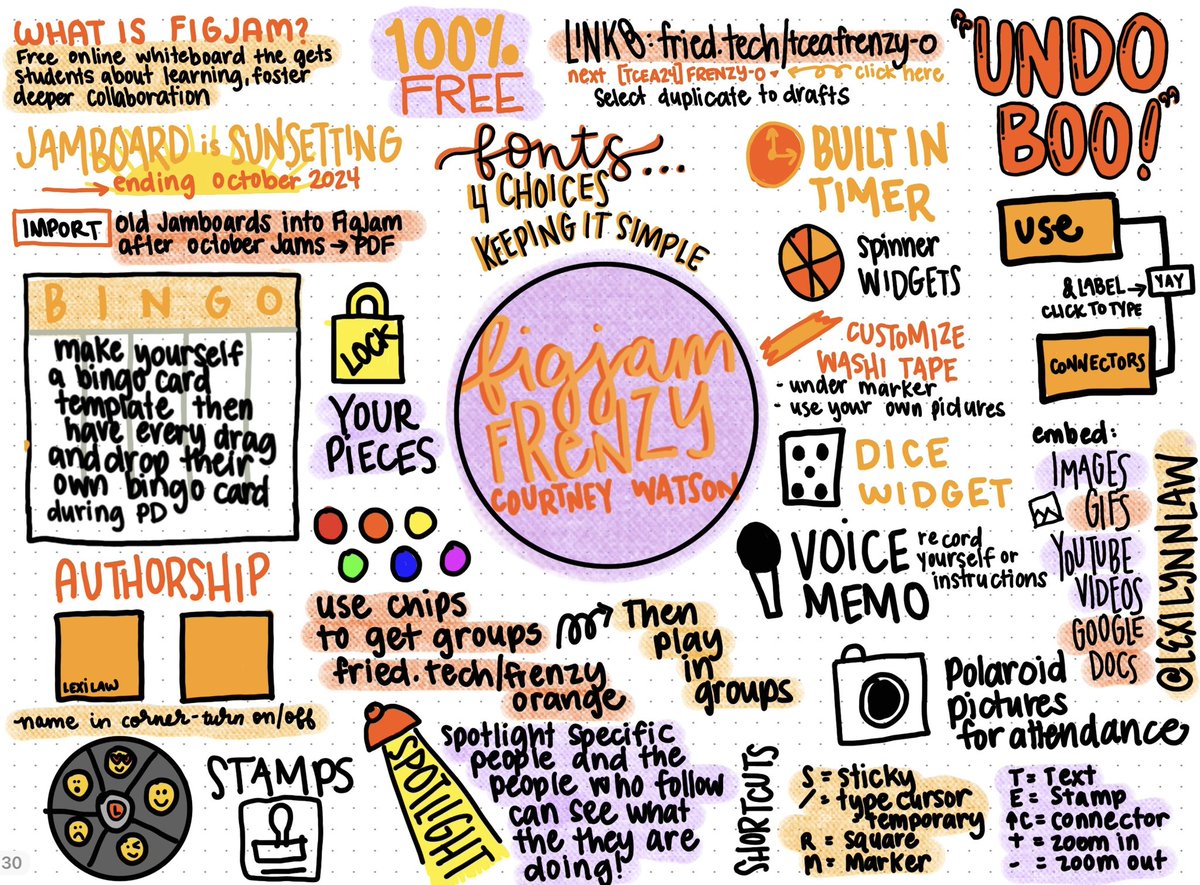 WHAT IS FIGJAM?
Free online whiteboard the gets
students about learning, foster
deeper collaboration
100%
FREE
LINKB: fried.tech/tceafrenzy-o
next [TCEA24] FRENZY-O click here
select duplicate to drafts
"UNDO
BOO!"
JAMBOARD is SUNSETTING
ending october 2024
IMPORT
old Jamboards into FigJam
after october Jams → PDF
fonts...
4 CHOICES
KEEPING IT SIMPLE
BUILT IN
TIMER
Spinner
WIDGETS
USE
& LABEL →
CLICK TO TYPE
YAY
CONNECTORS
BINGO
make yourself
a bingo card
template then
have every drag
and drop their
own bingo card
during PD
LOCK
YOUR
PIECES
figjam
FRENZY
COURTNEY WATSON
CUSTOMIZE
WASHI TAPE
- under marker
- use your own pictures
DICE
WIDGET
embed:
IMAGES
GIFS
YOUTUBE
VIDEOS
GOOGLE
DOCS
@LEXILYNNLAW
VOICE
MEMO
record
yourself or
instructions
AUTHORSHIP
LEXI LAW
name in corner-turn on/off
use chips
to get groups
fried.tech/frenzy
orange
Then
play
in
groups
Polaroid
pictures
for attendance
L
STAMPS
SPOTLIGHT
spotlight specific
people and the
people who follow
can see what
the they are
doing!
SHORTCUTS
S = sticky
/ = type cursor
temporary
R = square
M = marker
T = Text
E = Stamp
↑C = connector
+ = zoom in
- = zoom out
30